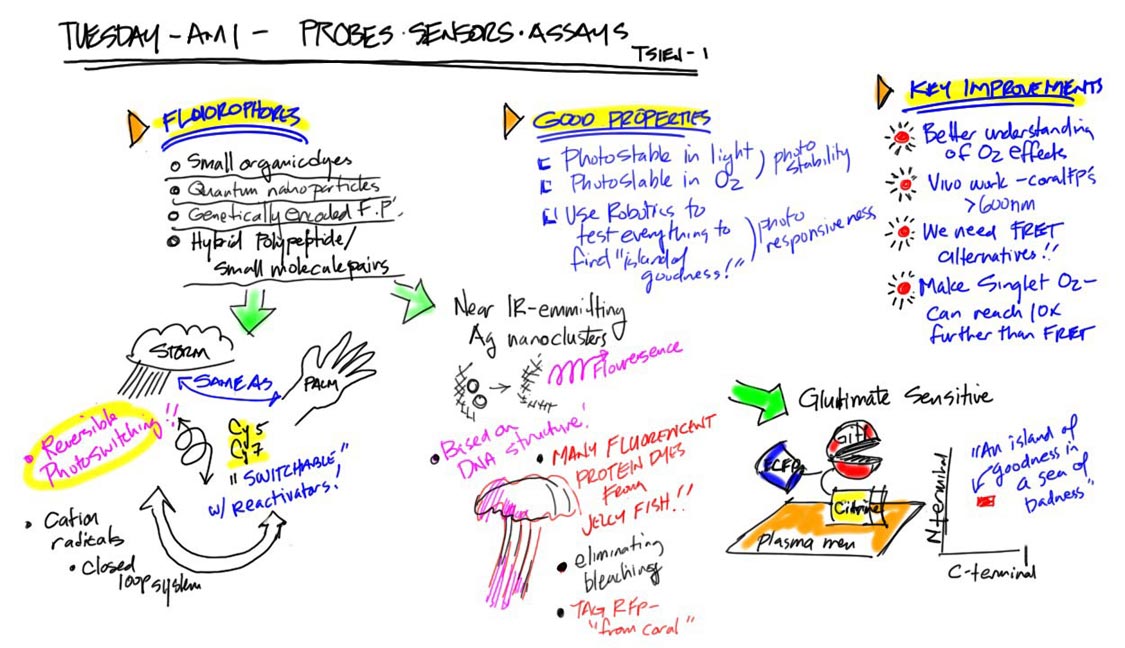 TUESDAY - AM1 - PROBES · SENSORS · ASSAYS
TSIEN - 1
FLUOROPHORES
Small organic dyes
Quantum nanoparticles
Genetically encoded F.P.
Hybrid Polypeptide/
Small molecule pairs
GOOD PROPERTIES
Photostable in light
Photostable in O2
) photo
stability
Use Robotics to
test everything to
find "island of
goodness!"
) photo
responsiveness
KEY IMPROVEMENTS
Better understanding
of O2 effects
Vivo work - coral FPs
>600nm
We need FRET
alternatives!!
Make Singlet O2 -
Can reach 10x
further than FRET
STORM
SAME AS
PALM
• Reversible
Photoswitching!!
Cy5
Cy7
"SWITCHABLE"
w/ reactivators!
• Cation
radicals
• Closed
loop system
Near IR-emmitting
Ag nanoclusters
Flouresence
• Based on
DNA structure!
• MANY FLUORENCENT
PROTEIN DYES
From
JELLY FISH!!
• eliminating
bleaching
• TAG RFP -
"from coral"
Glutimate Sensitive
GltI
ECFP
Citrine
plasma mem
N terminal
C-terminal
"An island of
goodness in
a sea of
badness"